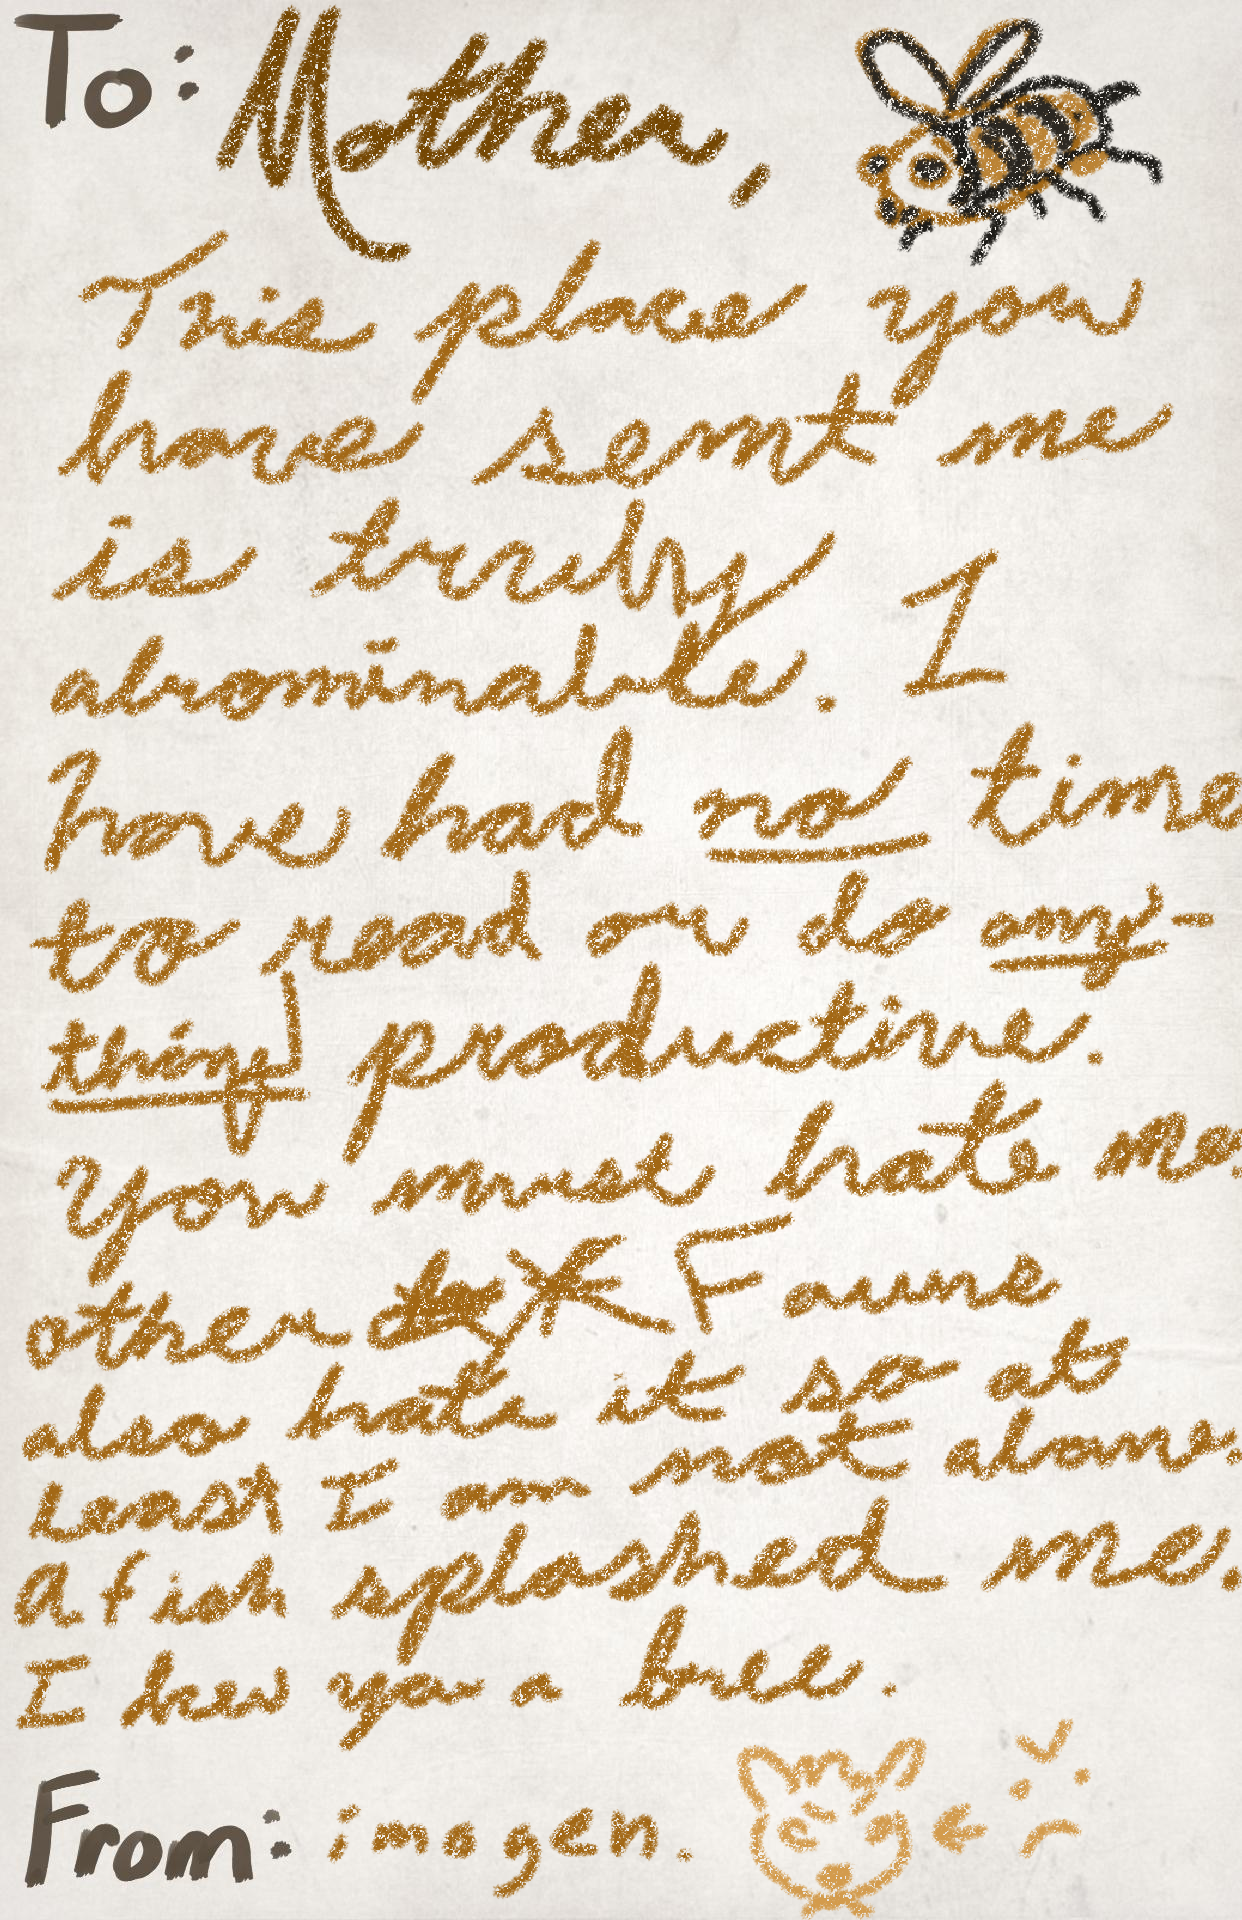 To: Mother,
This place you
have sent me
is truly
abominable. I
have had no time
to read or do any-
thing productive.
You must hate me.
other Fauns
also hate it so at
least I am not alone.
A fish splashed me.
I hew you a bree.
From: imogen.